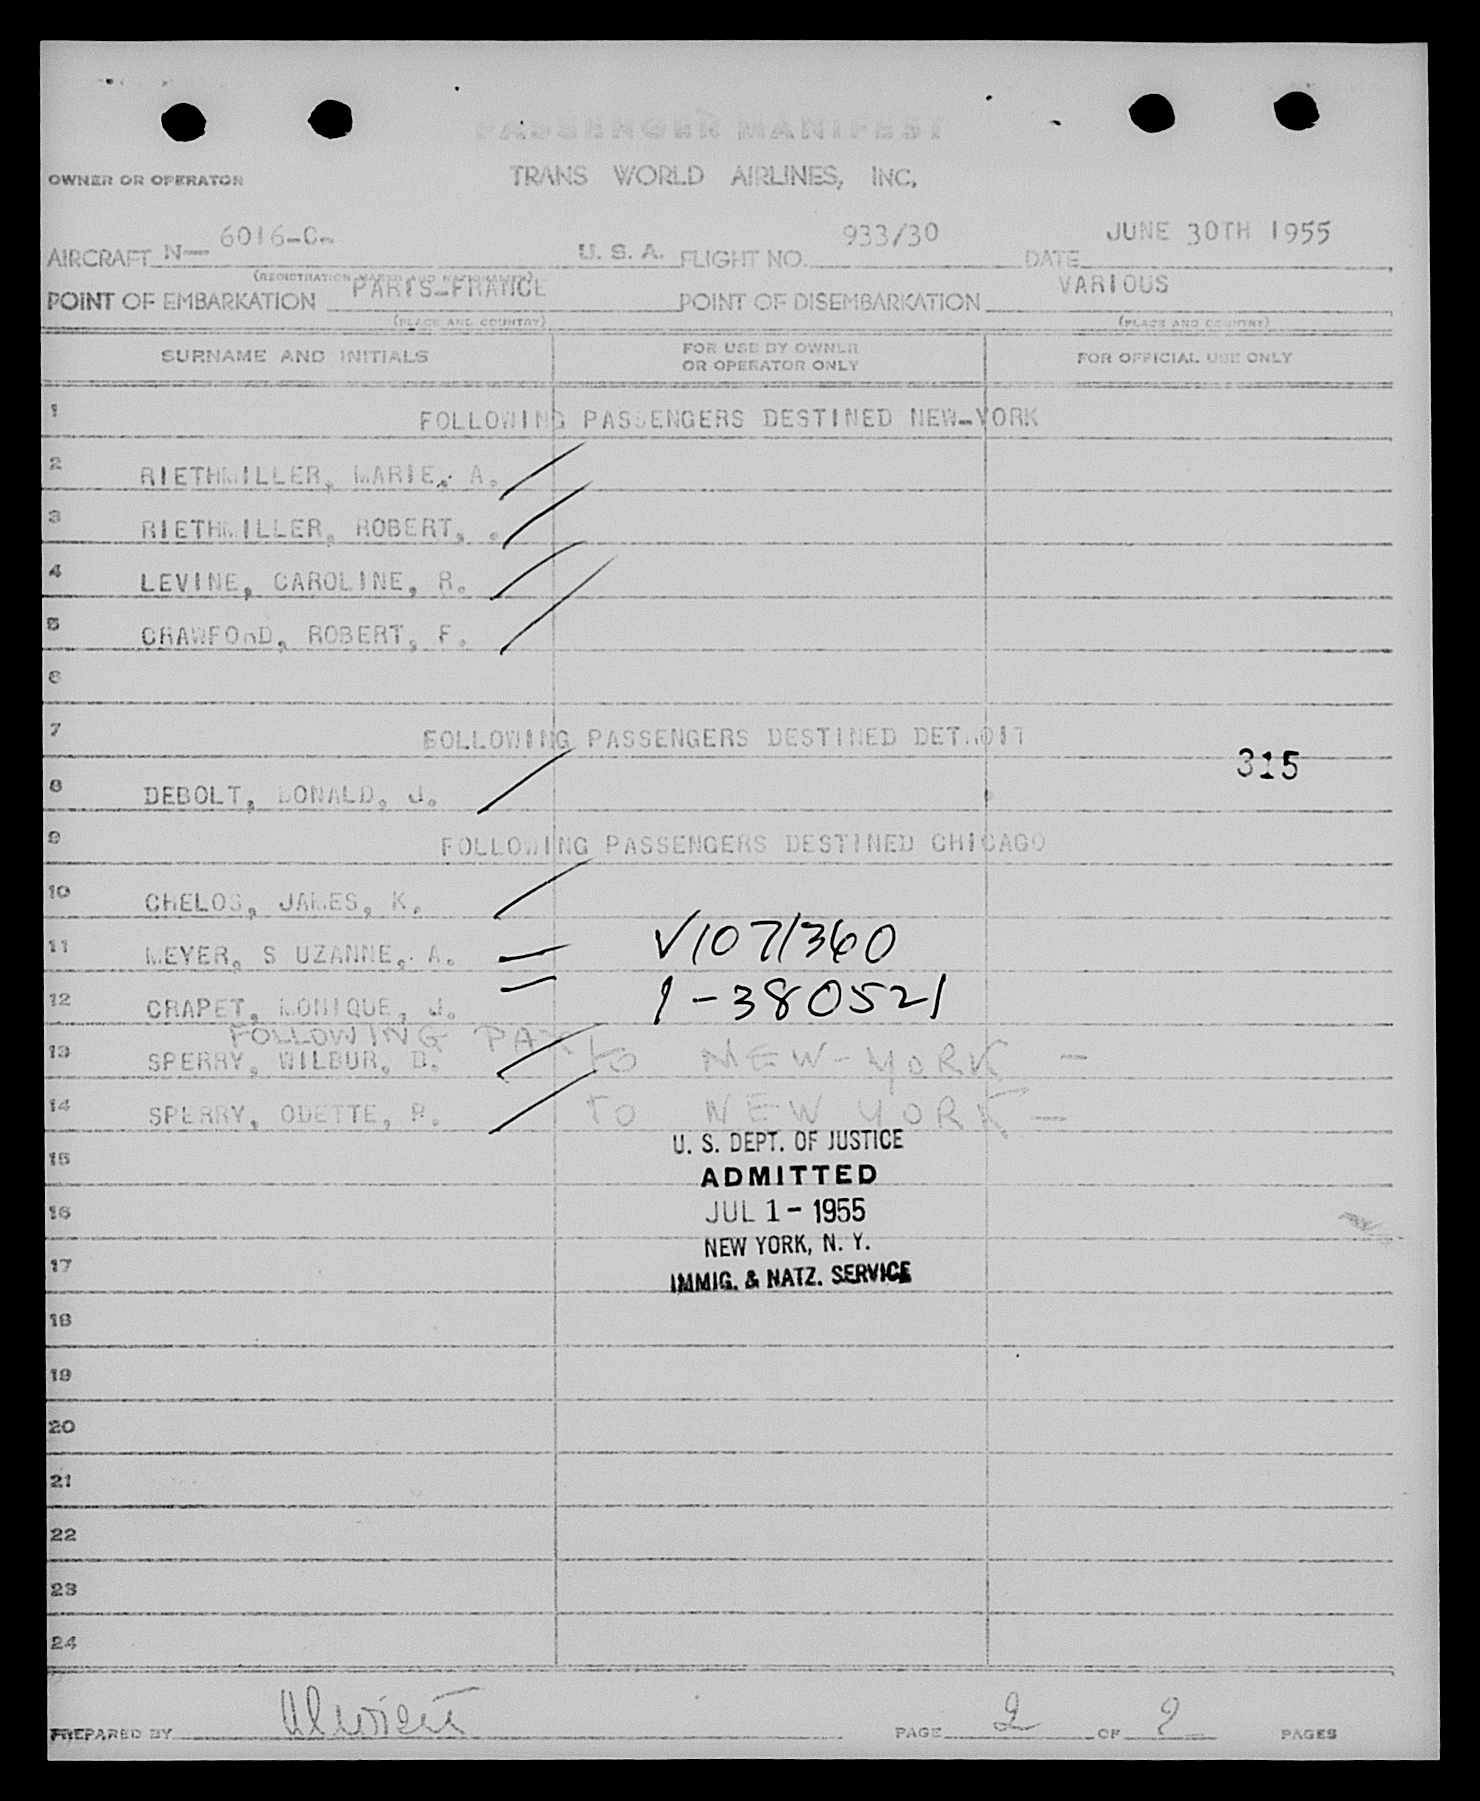 PASSENGER MANIFEST
OWNER OR OPERATOR TRANS WORLD AIRLINES, INC.
AIRCRAFT N— 6016-C- U. S. A. FLIGHT NO. 933/30 DATE JUNE 30TH 1955
(REGISTRATION MARKS AND NATIONALITY)
POINT OF EMBARKATION PARIS-FRANCE POINT OF DISEMBARKATION VARIOUS
(PLACE AND COUNTRY) (PLACE AND COUNTRY)
SURNAME AND INITIALS FOR USE BY OWNER OR OPERATOR ONLY FOR OFFICIAL USE ONLY
1 FOLLOWING PASSENGERS DESTINED NEW-YORK
2 RIETHMILLER, MARIE, A.
3 RIETHMILLER, ROBERT, .
4 LEVINE, CAROLINE, R.
5 CRAWFORD, ROBERT, F.
6
7 FOLLOWING PASSENGERS DESTINED DETROIT
315
8 DEBOLT, DONALD, J.
9 FOLLOWING PASSENGERS DESTINED CHICAGO
10 CHELOS, JAMES, K.
11 MEYER, S UZANNE, A. V1071/360
12 CRAPET, MONIQUE, J. 1-380521
FOLLOWING PAX
13 SPERRY, WILBUR, D. to NEW-YORK -
14 SPERRY, ODETTE, P. TO NEW YORK -
15 U. S. DEPT. OF JUSTICE
ADMITTED
16 JUL 1 - 1955
NEW YORK, N. Y.
17 IMMIG. & NATZ. SERVICE
18
19
20
21
22
23
24
PREPARED BY PAGE 2 OF 2 PAGES